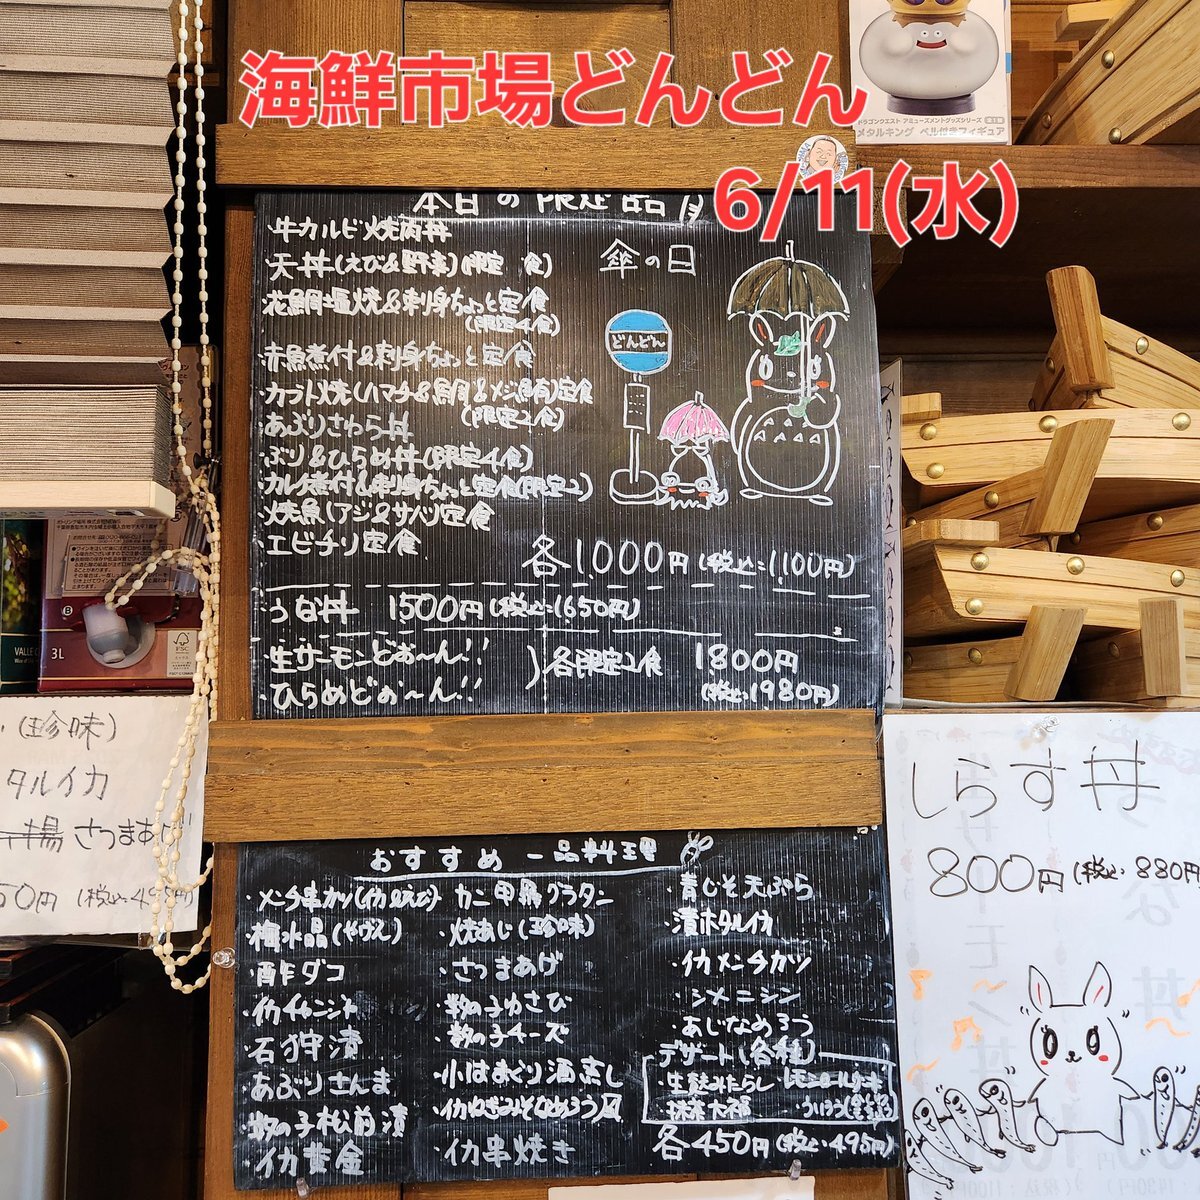 海鮮市場どんどん
6/11(水)
ドラゴンクエスト アミューズメントグッズシリーズ
メタルキング ベル付きフィギュア
本日の限定品
・牛カルビ焼肉丼
・天丼(えび&野菜)(限定 食)
・花鯛塩焼&刺身ちょっと定食
(限定4食)
・赤魚煮付&刺身ちょっと定食
・カブト焼(ハマチ&鯛&メジ鮪)定食
(限定2食)
・あぶりさわら丼
・ぶり&ひらめ丼(限定4食)
・カレイ煮付&刺身ちょっと定食(限定2)
・焼魚(アジ&サバ)定食
・エビチリ定食
各1,000円(税込:1,100円)
傘の日
どんどん
・うな丼 1500円(税込:1,650円)
・生サーモンどぉ〜ん!!
・ひらめどぉ〜ん!!
各限定2食 1800円
(税込1980円)
おすすめ一品料理
・メンチ串カツ(イカ&えび)
・梅水晶(やげん)
・酢ダコ
・イカチャンジャ
・石狩漬
・あぶりさんま
・数の子松前漬
・イカ黄金
・カニ甲羅グラタン
・焼あじ(珍味)
・さつまあげ
・数の子わさび
・数の子チーズ
・小はまぐり酒蒸し
・イカねぎみそなめろう風
・イカ串焼き
・青じそ天ぷら
・漬ホタルイカ
・イカメンチカツ
・シメニシン
・あじなめろう
デザート(各種)
・生麩みたらし
・抹茶大福
各450円(税込:495円)
(珍味)
タルイカ
さつまあげ
50円(税込:495円)
3L
しらす丼
800円(税込:880円)